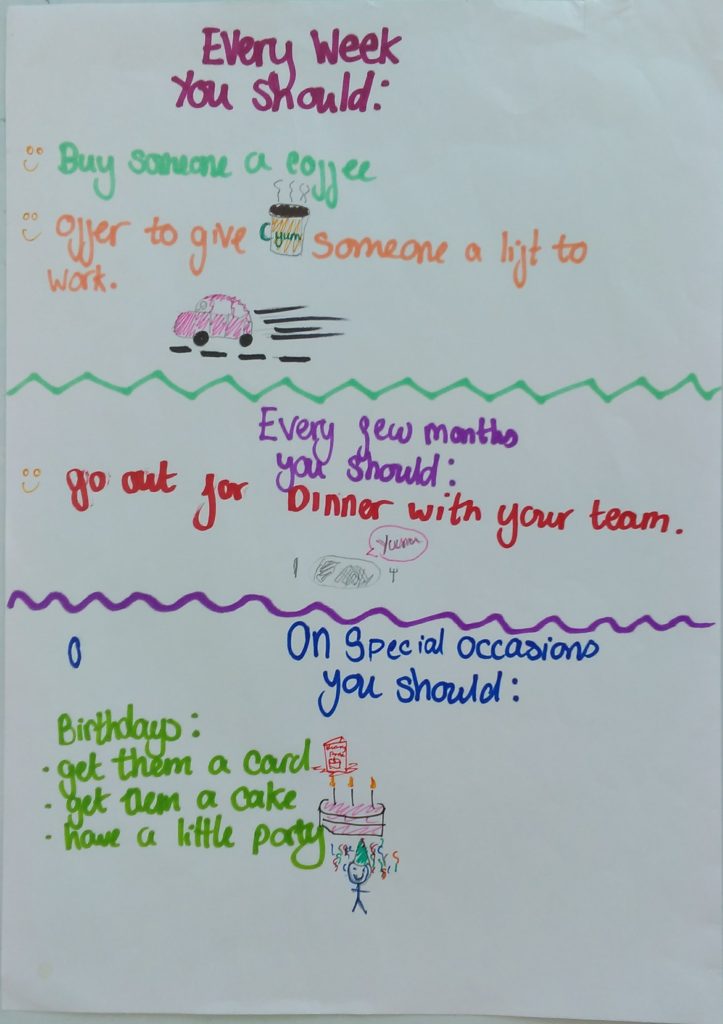 Every Week
You Should:
Buy someone a coffee
offer to give someone a lift to
work.
C yum
Every few months
you should:
go out for Dinner with your team.
On Special occasions
you should:
Birthdays:
· get them a card
· get them a cake
· have a little party